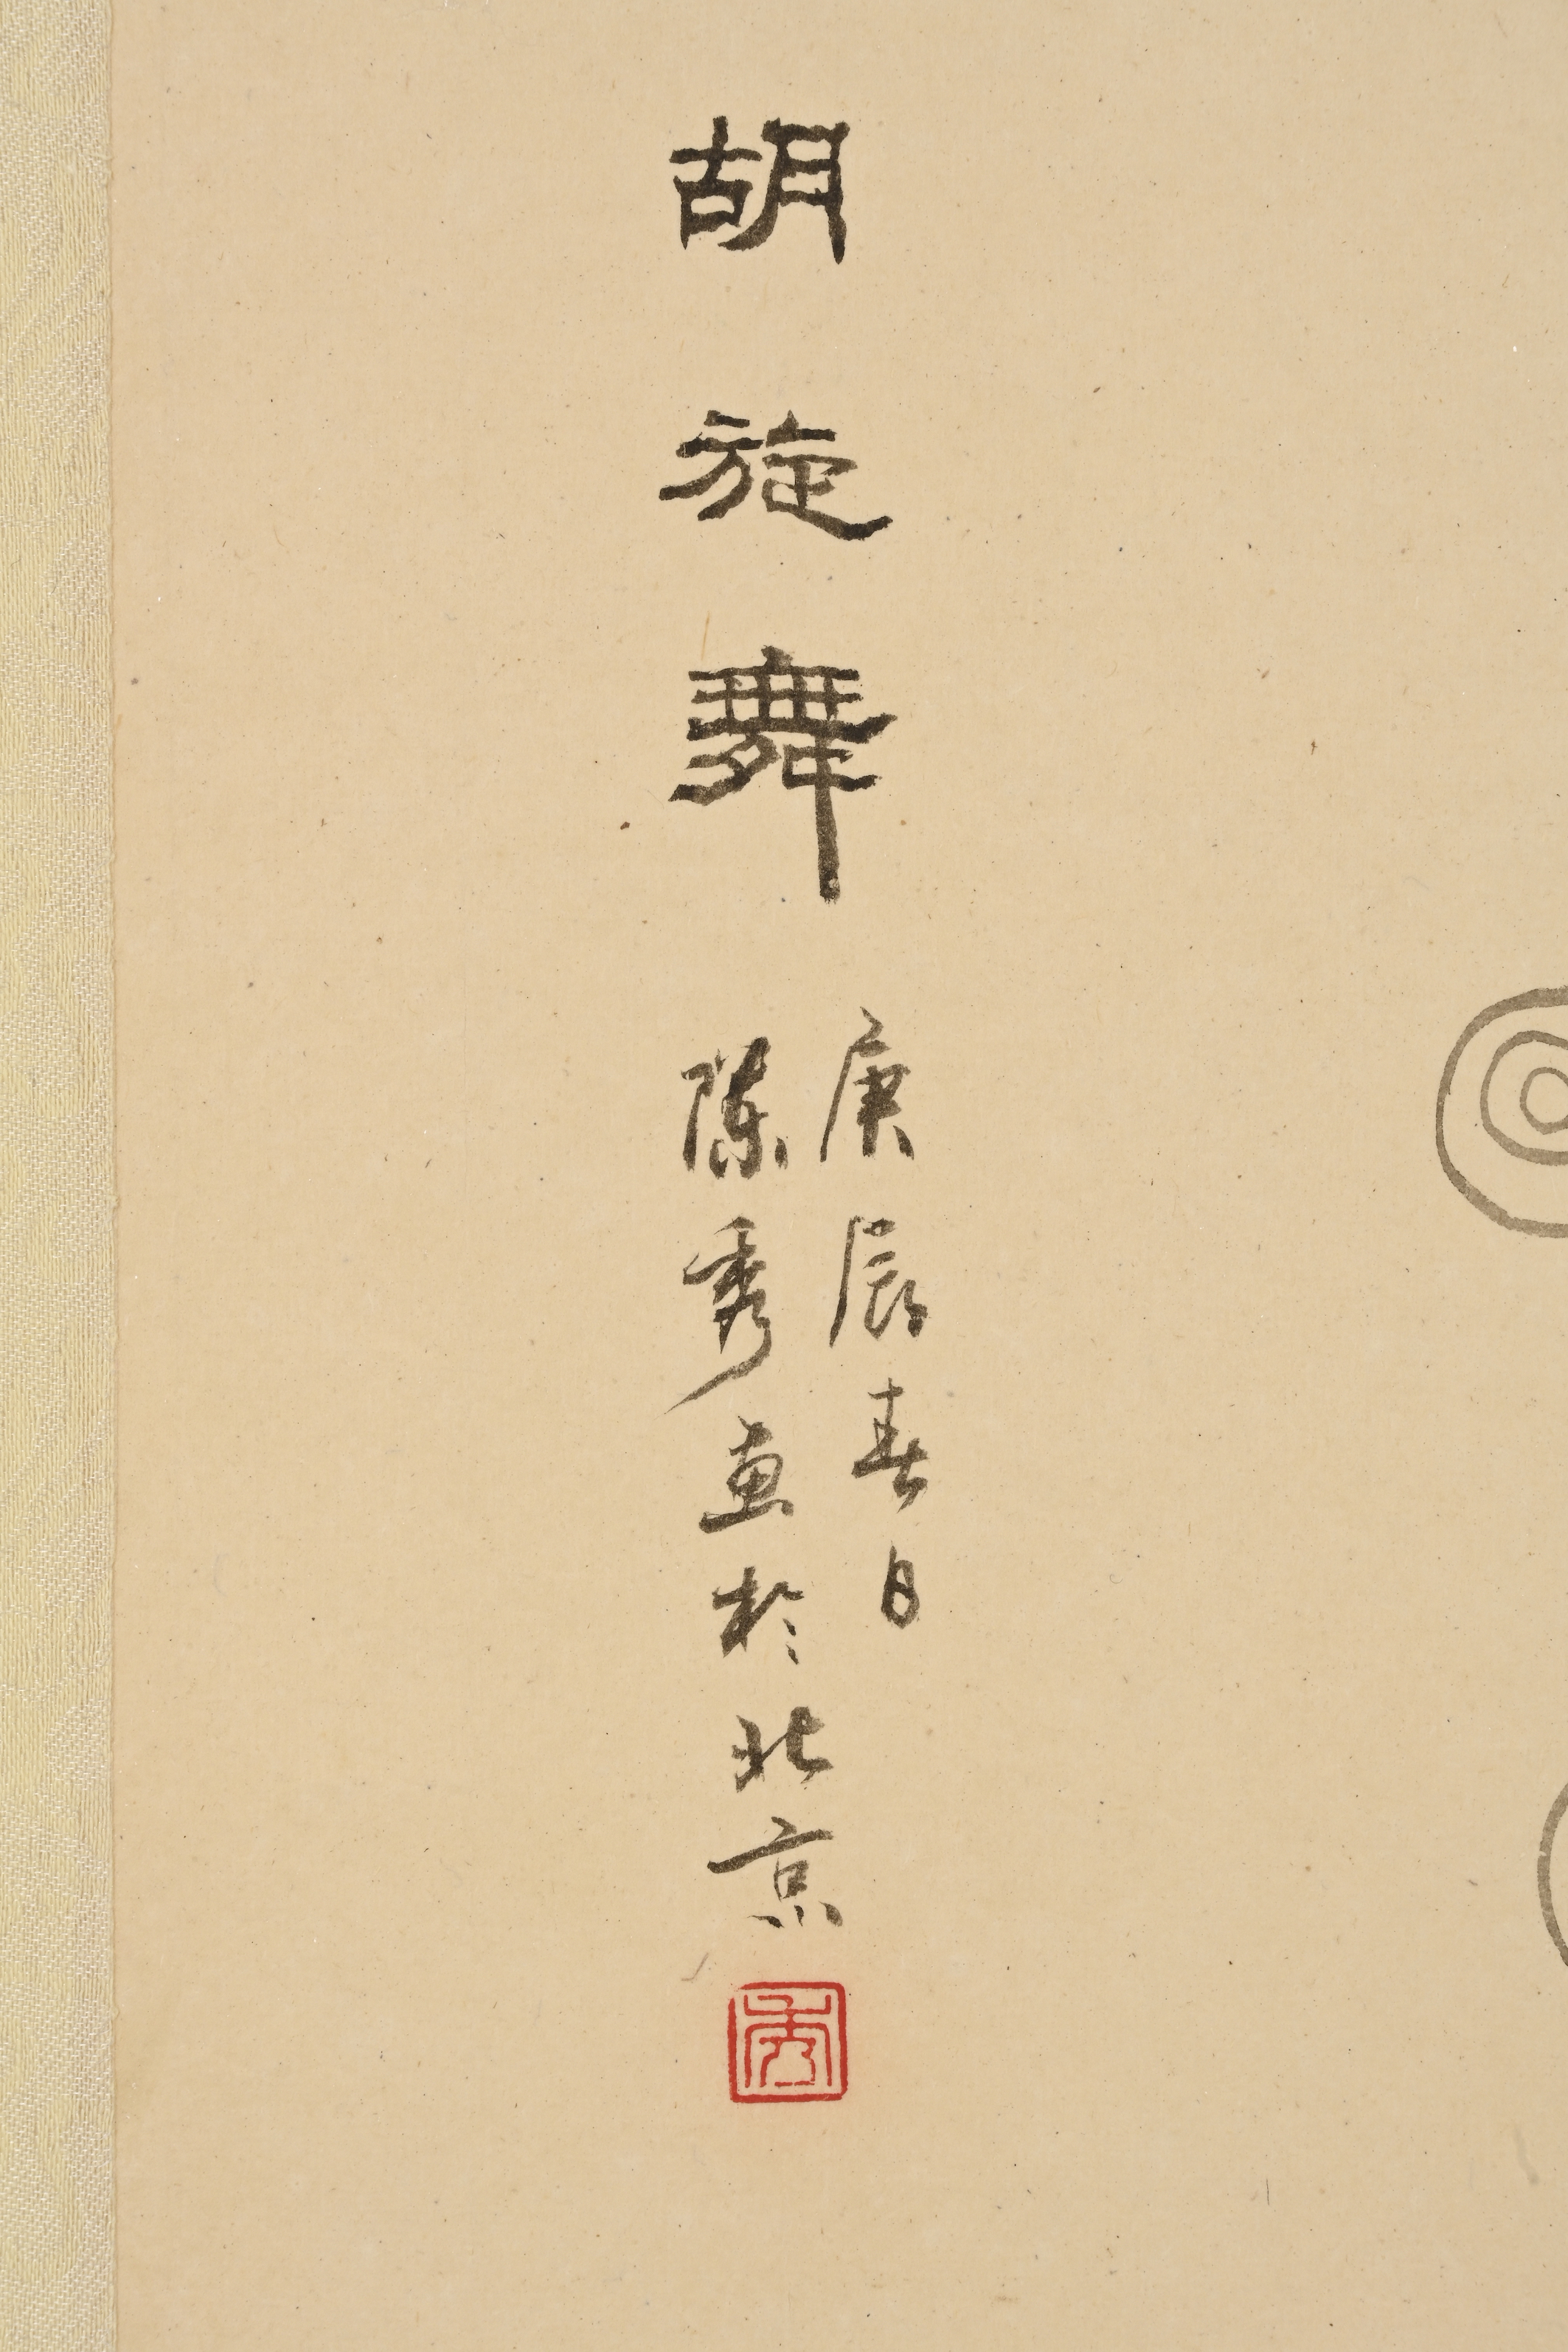 胡旋舞
庚辰春日
陈秀画於北京
秀